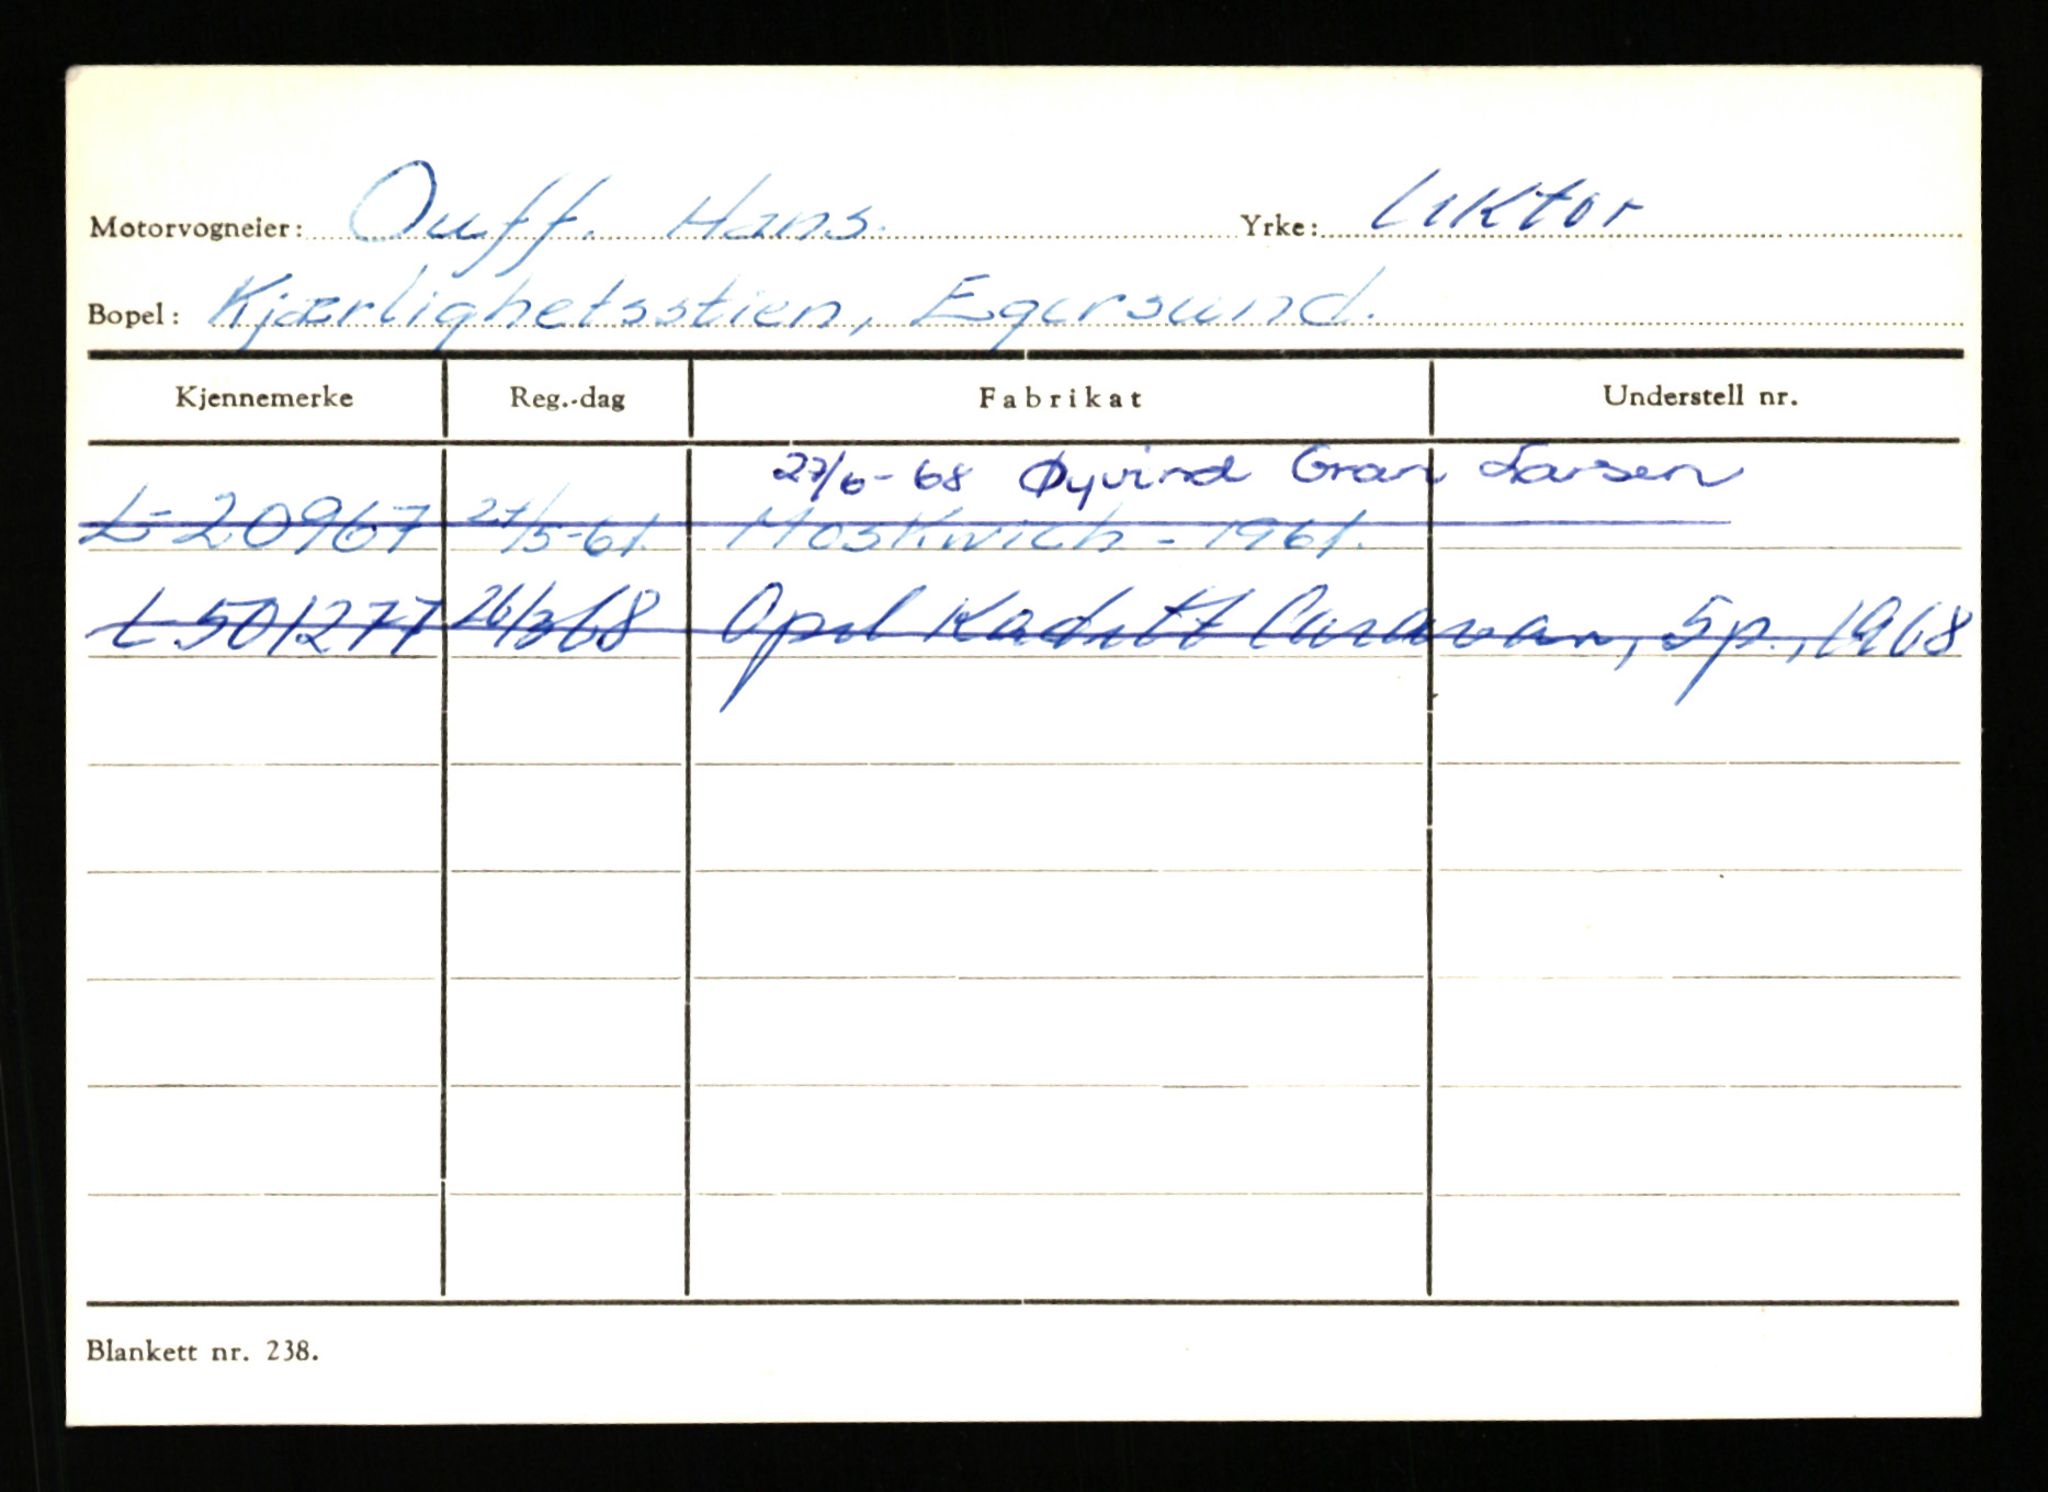 Motorvogneier: Ouff. Hans. Yrke: Lektor
Bopel: Kjærlighetsstien, Egersund.
Kjennemerke Reg.-dag Fabrikat Understell nr.
27/6-68 Øyvind Gran Larsen
L-20967 27/5-61. Moskwich - 1961.
L.501277 26/3 68 Opel Kadett Caravan, 5p., 1968
Blankett nr. 238.